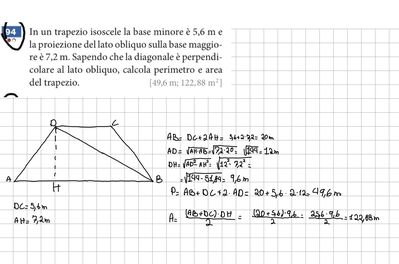 94
In un trapezio isoscele la base minore è 5,6 m e
la proiezione del lato obliquo sulla base maggio-
re è 7,2 m. Sapendo che la diagonale è perpendi-
colare al lato obliquo, calcola perimetro e area
del trapezio. [49,6 m; 122,88 m²]
D C
A H B
DC= 5,6m
AH= 7,2m
AB= DC+2AH= 5,6+2·7,2= 20m
AD= √AH·AB= √7,2·20= √144= 12m
DH= √AD²-AH²= √12²-7,2²=
=√144-51,84= 9,6m
P= AB+DC+2·AD= 20+5,6+2·12=49,6m
A= (AB+DC)·DH/2= (20+5,6)·9,6/2= 25,6·9,6/2=122,88m